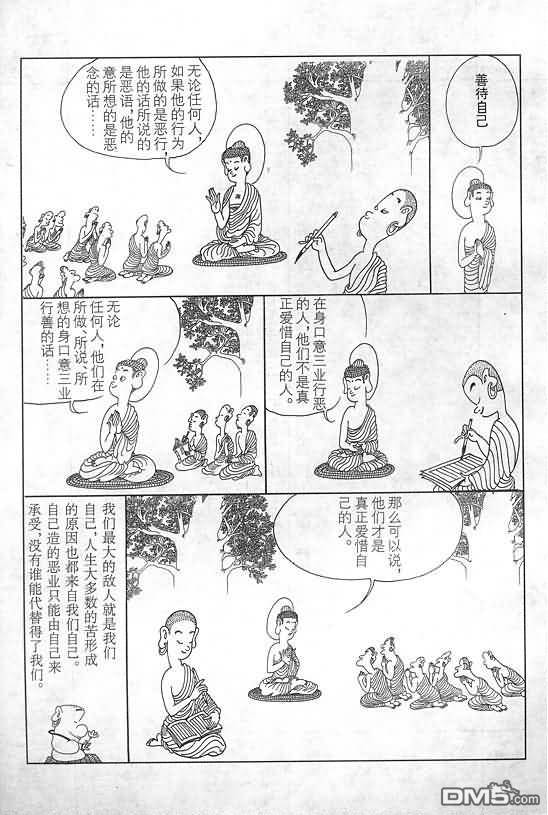 善待自己
无论任何人，
如果他的行为
所做的是恶行，
他的话所说的
是恶语，他的
意所想的是恶
念的话……
在身口意三业行恶
的人，他们不是真
正爱惜自己的人。
无论
任何人，他们在
所做、所说、所
想的身口意三业
行善的话……
那么可以说，
他们才是
真正爱惜自
己的人。
我们最大的敌人就是我们
自己，人生大多数的苦形成
的原因也都来自我们自己。
自己造的恶业只能由自己来
承受，没有谁能代替得了我们。
DM5.com